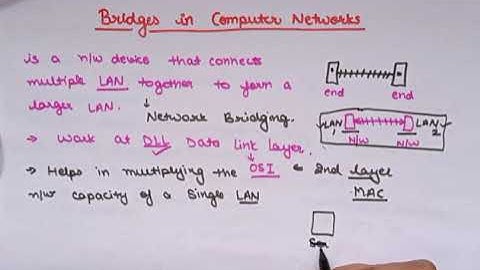 Bridges in Computer Networks
is a n/w device that connects
multiple LAN together to form a
larger LAN.
Network Bridging.
→ Work at DLL Data Link Layer.
→ Helps in multiplying the OSI ← 2nd layer
n/w capacity of a single LAN
MAC
end end
LAN 1 LAN 2
N/W N/W